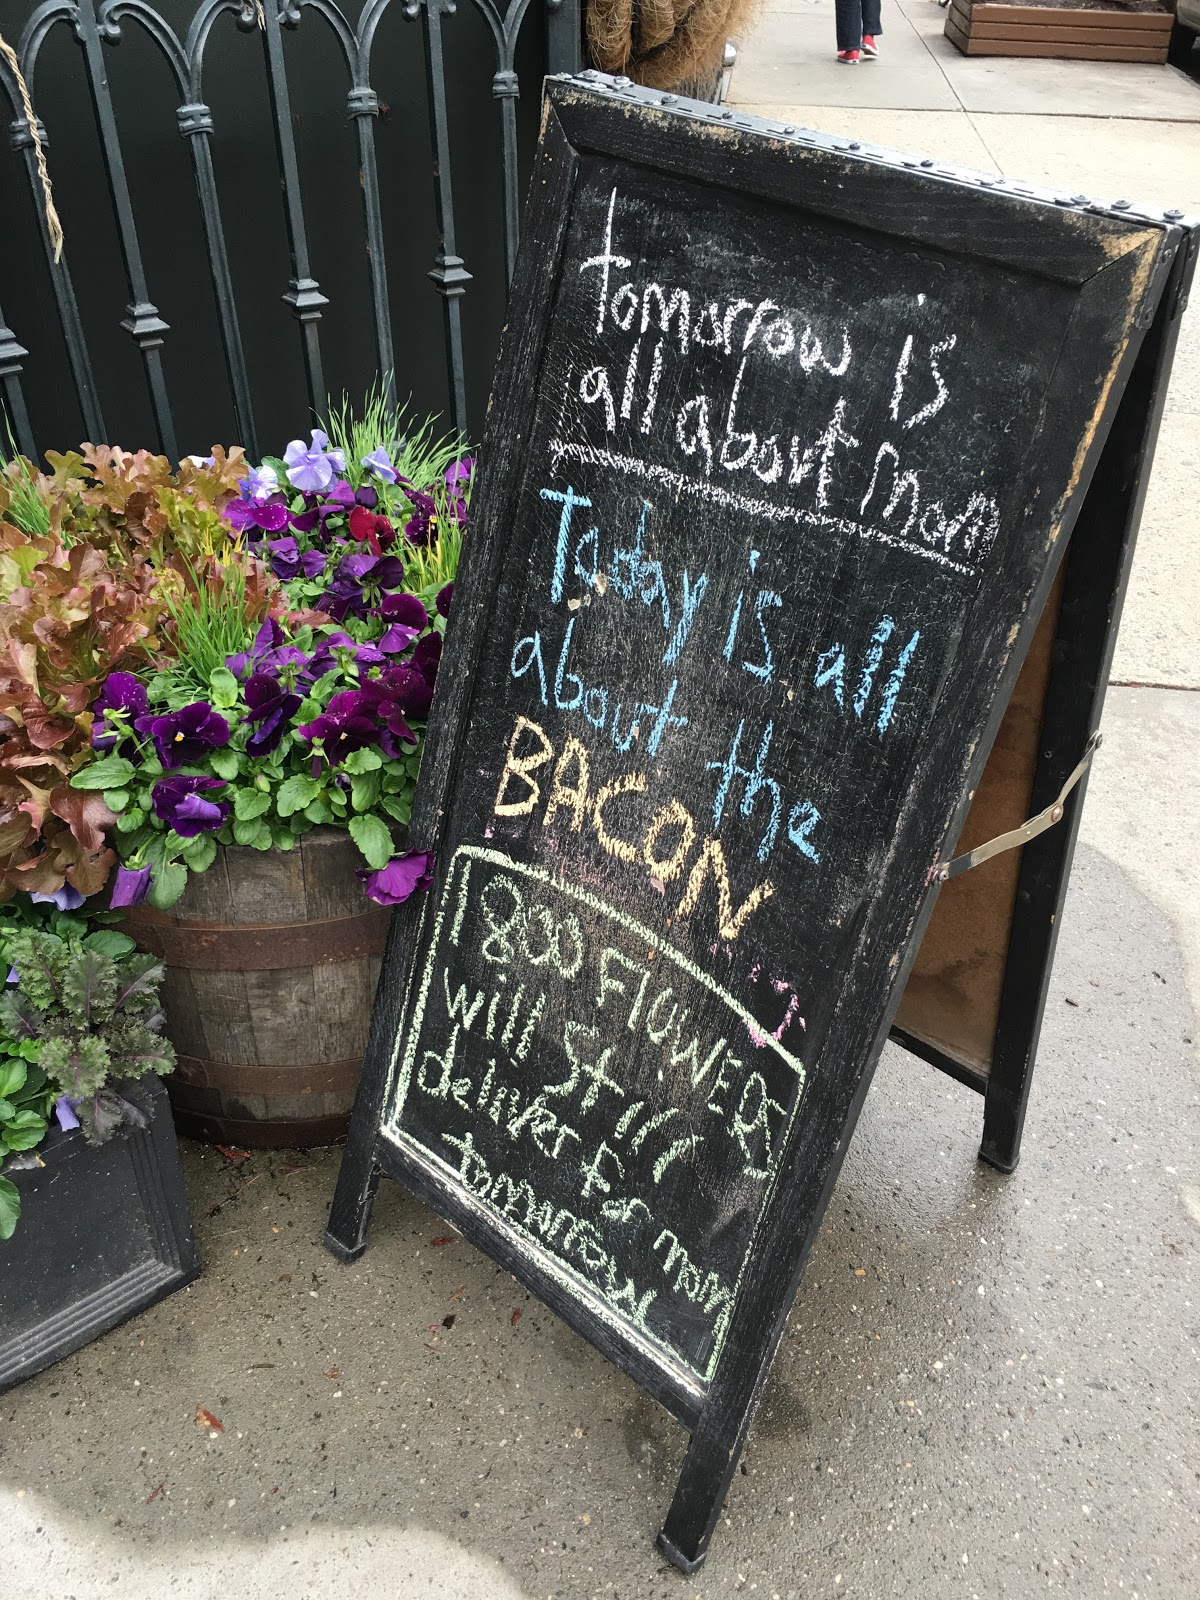 tomorrow is
all about mom
Today is all
about the
BACON
1800 FlOWERS
will still
deliver For mom
tommarrow